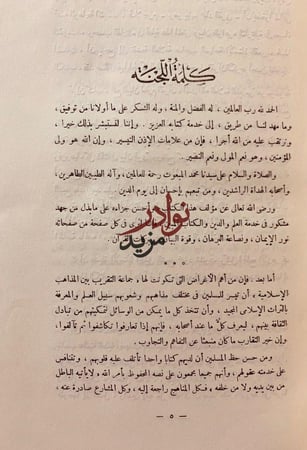 كلمة اللجنة
الحمد لله رب العالمين ، له الفضل والمنة ، وله الشكر على ما أولانا من توفيق ،
وما مهد لنا من طريق ، إلى خدمة كتابه العزيز . وإننا لنستبشر بذلك خيرا ،
ونرتقب عليه من الله أجرا . فإن من علامات الإذن التيسير ، وإن الله هو ولى
المؤمنين ، وهو نعم المولى ونعم النصير .
والصلاة والسلام على سيدنا محمد المبعوث رحمة للعالمين ، وآله الطيبين الطاهرين ،
وأصحابه الهداة الراشدين ، ومن تبعهم بإحسان إلى يوم الدين
ورضى الله تعالى عن مؤلف هذا الكتاب أحسن جزاءه على ما بذل من جهد
مشكور فى خدمة العلم والدين والكتاب فى كل صفحة من صفحاته
نور الإيمان ، ونصاعة البرهان ، وقوة البيان القرآن .
نوادر
مزيد
* * *
أما بعد . فإن من أهم الأغراض التى تكونت لها « جماعة التقريب بين المذاهب
الإسلامية » أن تيسر للمسلمين فى مختلف مذاهبهم وشعوبهم سبيل العلم والمعرفة
بالتراث الإسلامى المجيد ، وأن تتخذ كل ما يمكن من الوسائل لتمكينهم من تبادل
الثقافة بينهم ، ليعرف كل ما عند أصحابه . فإنهم إذا تعارفوا تكاشفوا ثم تآلفوا ،
وإن خير التقارب ما كان منبعثا عن التفاهم والتجاوب .
ومن حسن حظ المسلمين أن لديهم كتابا واحدا تأتلف عليه قلوبهم ، وتتنافس
فى خدمته عقولهم ، وأنهم جميعا مجمعون على نصه المحفوظ بأمر الله « لا يأتيه الباطل
من بين يديه ولا من خلفه » فكل المناهج راجعة إليه ، وكل المشارع صادرة عنه ،
— ٥ —